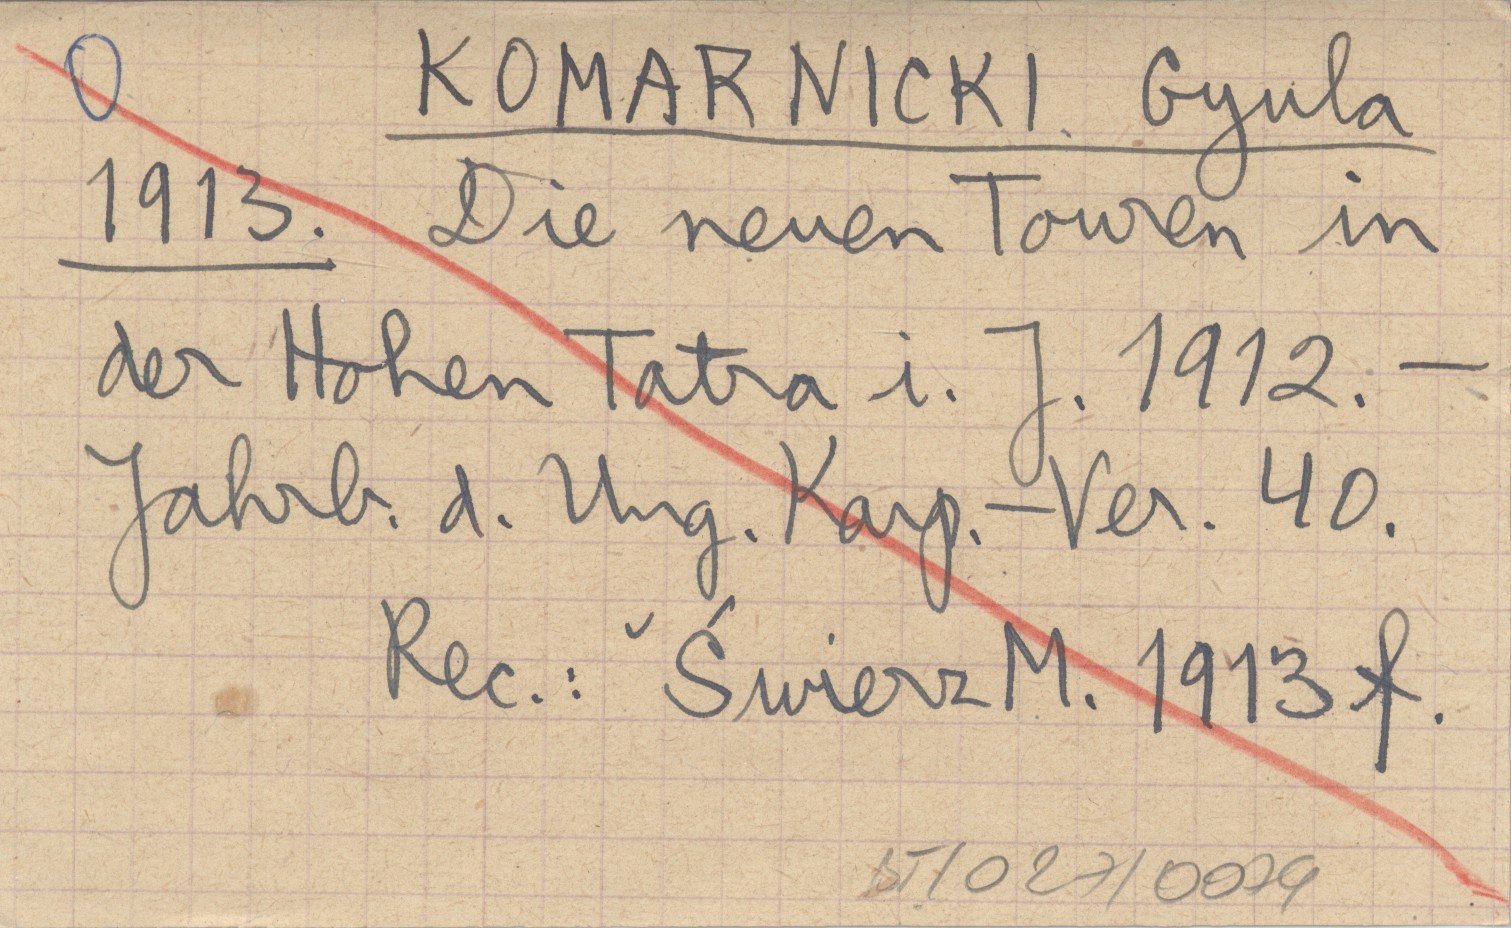 O KOMARNICKI Gyula
1913. Die neuen Touren in
der Hohen Tatra i. J. 1912. —
Jahrb. d. Ung. Karp.-Ver. 40.
Rec.: Świerz M. 1913 f.
BT/027/0079